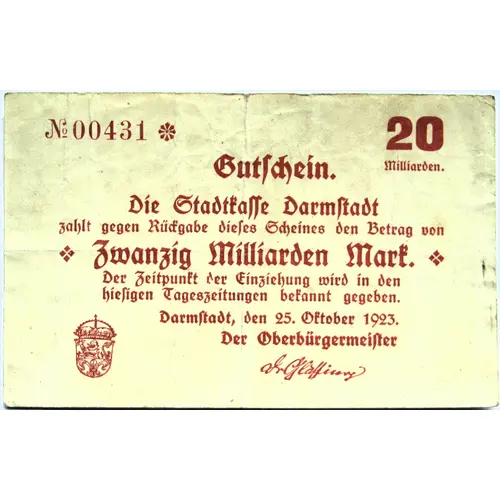 № 00431 ❊
20
Milliarden.
Gutschein.
Die Stadtkasse Darmstadt
zahlt gegen Rückgabe dieses Scheines den Betrag von
Zwanzig Milliarden Mark.
Der Zeitpunkt der Einziehung wird in den
hiesigen Tageszeitungen bekannt gegeben.
Darmstadt, den 25. Oktober 1923.
Der Oberbürgermeister